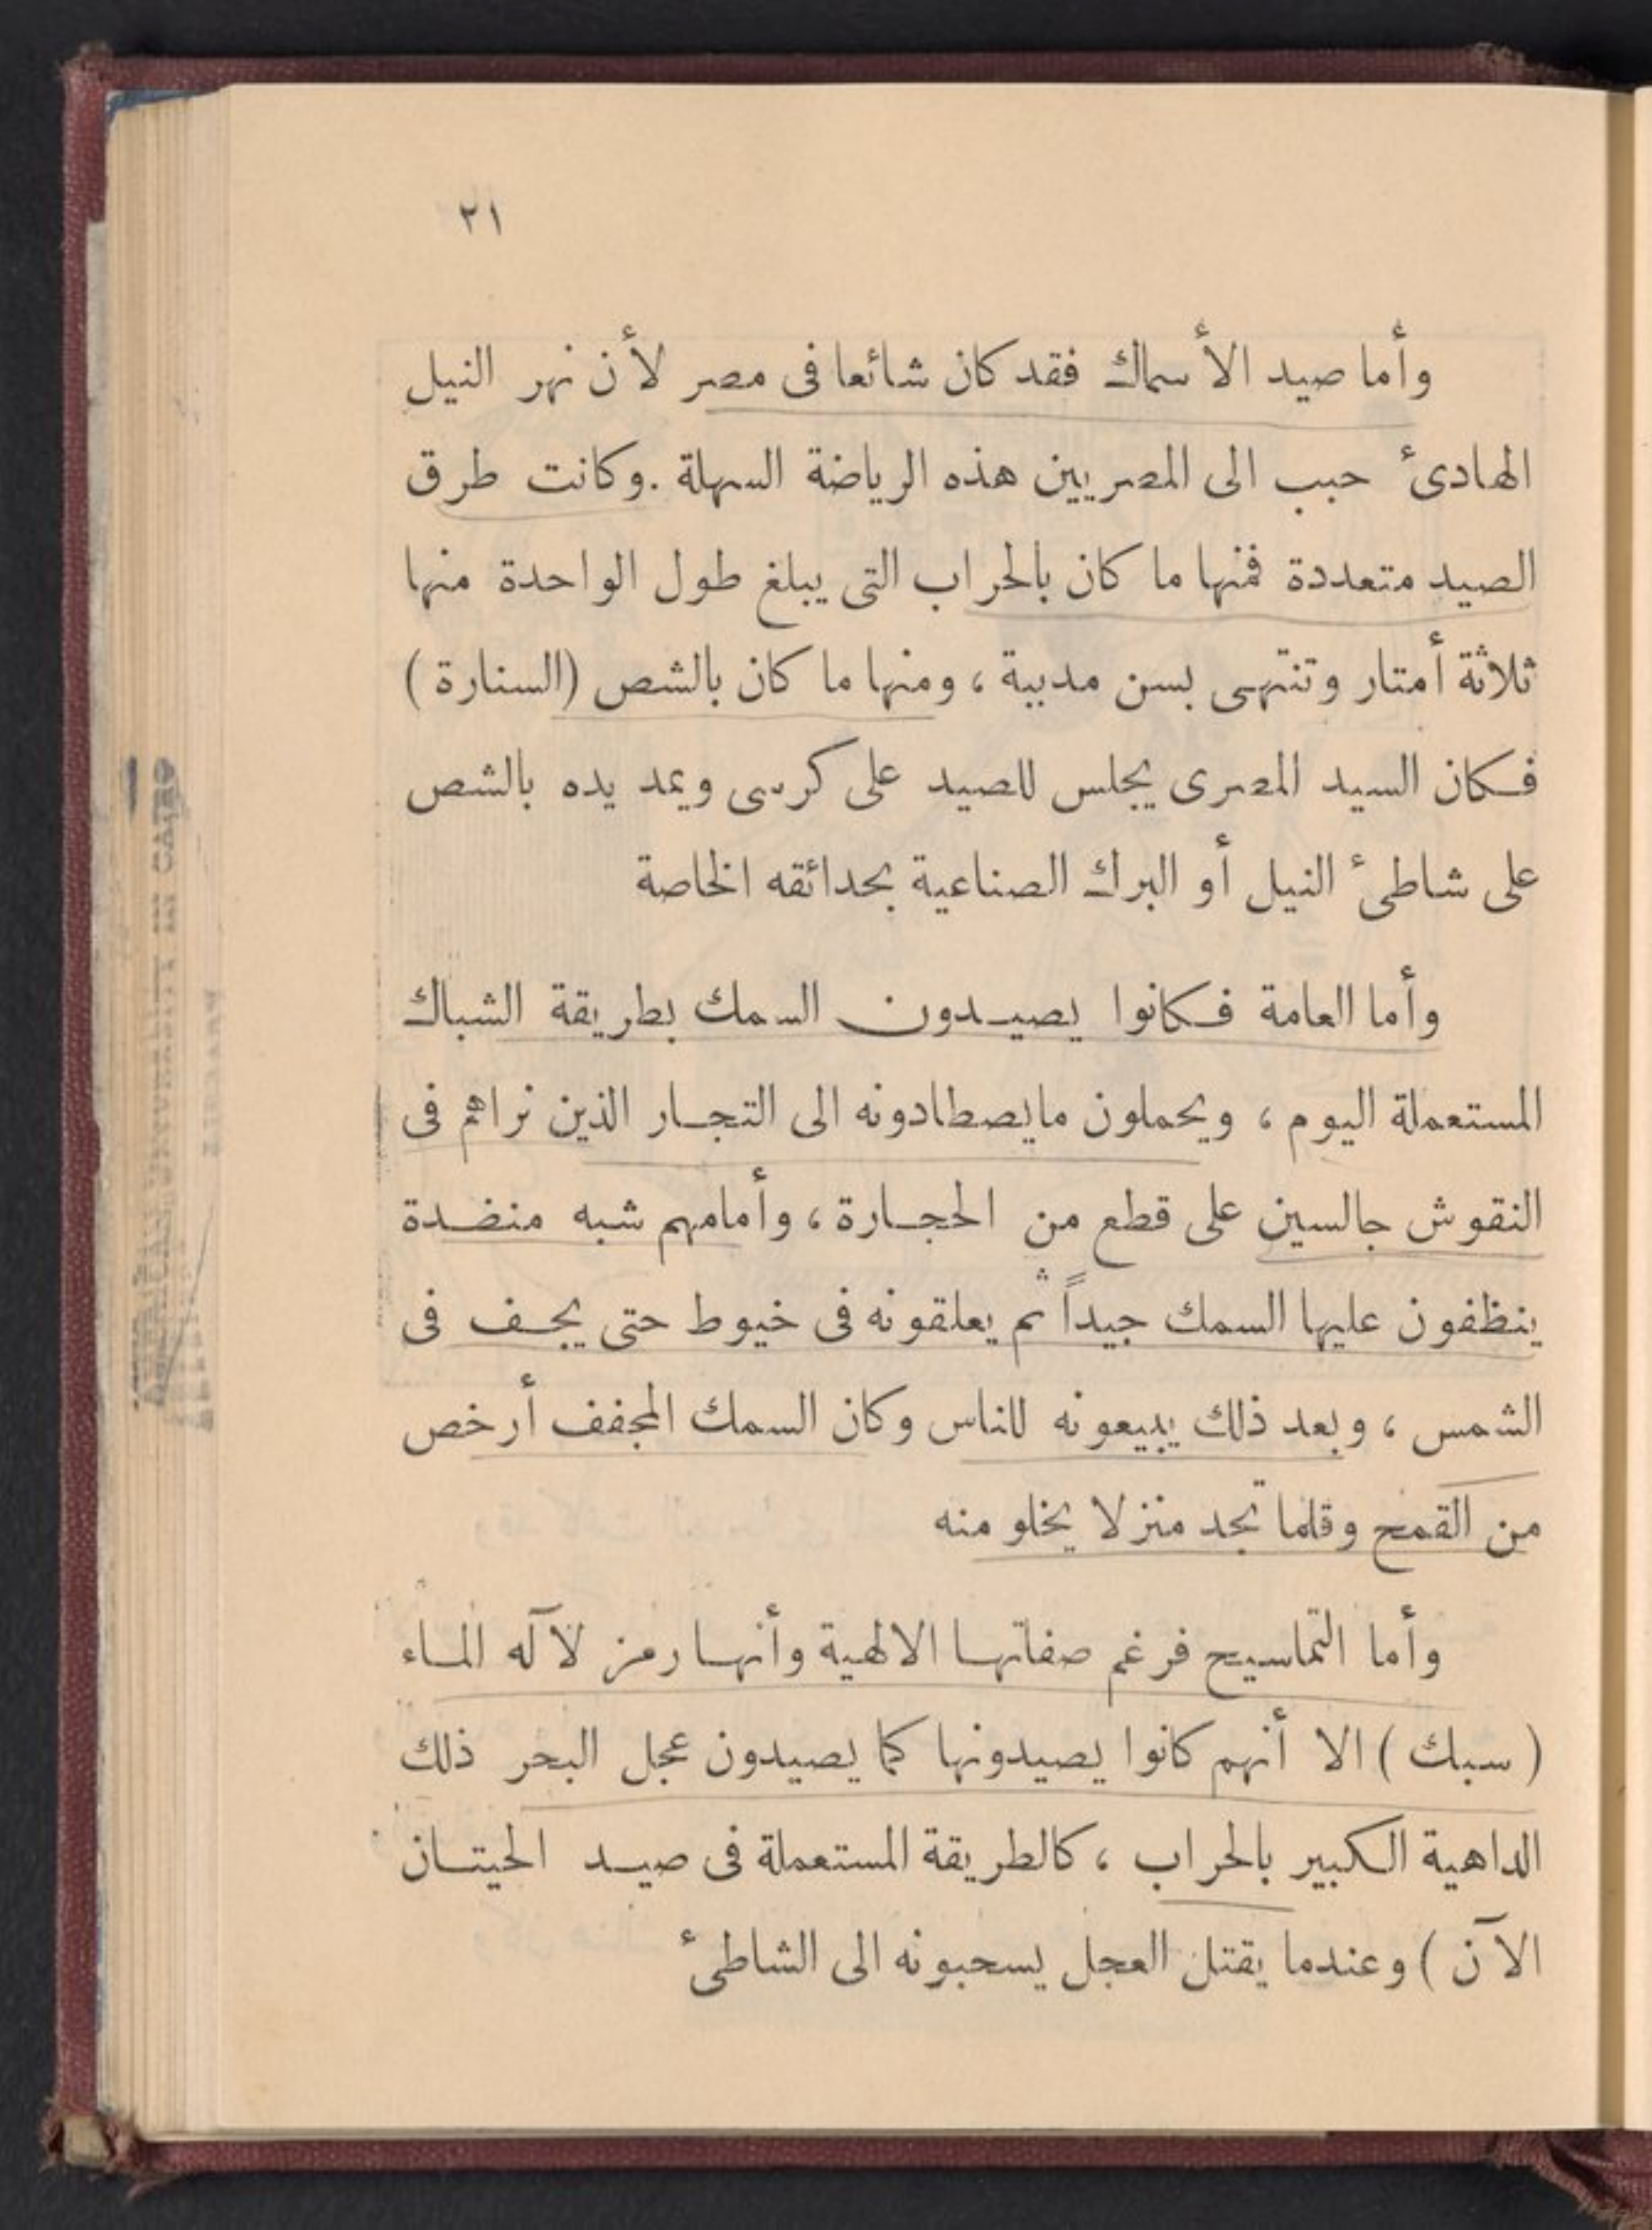 ٢١
وأما صيد الأسماك فقد كان شائعا فى مصر لأن نهر النيل
الهادىء حبب الى المصريين هذه الرياضة السهلة . وكانت طرق
الصيد متعددة فمنها ما كان بالحراب التى يبلغ طول الواحدة منها
ثلاثة أمتار وتنتهى بسن مدببة ، ومنها ما كان بالشص (السنارة)
فكان السيد المصرى يجلس للصيد على كرسى ويمد يده بالشص
على شاطىء النيل أو البرك الصناعية بحدائقه الخاصة
وأما العامة فكانوا يصيدون السمك بطريقة الشباك
المستعملة اليوم ، ويحملون مايصطادونه الى التجار الذين نراهم فى
النقوش جالسين على قطع من الحجارة ، وأمامهم شبه منضدة
ينظفون عليها السمك جيداً ثم يعلقونه فى خيوط حتى يجف فى
الشمس ، وبعد ذلك يبيعونه للناس وكان السمك المجفف أرخص
من القمح وقلما تجد منزلا يخلو منه
وأما التماسيح فرغم صفاتها الالهية وأنها رمز لآله الماء
( سبك ) الا أنهم كانوا يصيدونها كما يصيدون عجل البحر ذلك
الداهية الكبير بالحراب ، كالطريقة المستعملة فى صيد الحيتان
الآن ) وعندما يقتل العجل يسحبونه الى الشاطىء